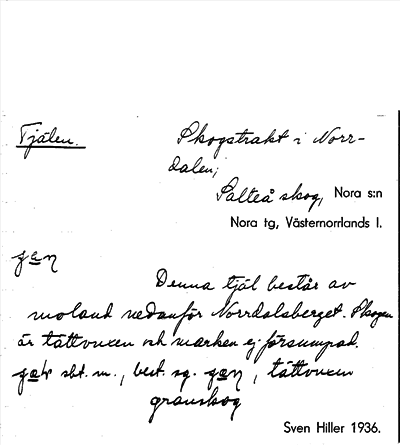 Tjälen.
Skogstrakt i Norr-
dalen;
Salteå skog, Nora s:n
Nora tg, Västernorrlands l.
Denna tjäl består av
moland nedanför Norrdalsberget. Skogen
är tättvuxen och marken ej försumpad.
sbt. m., best. sg. , tättvuxen
granskog
Sven Hiller 1936.